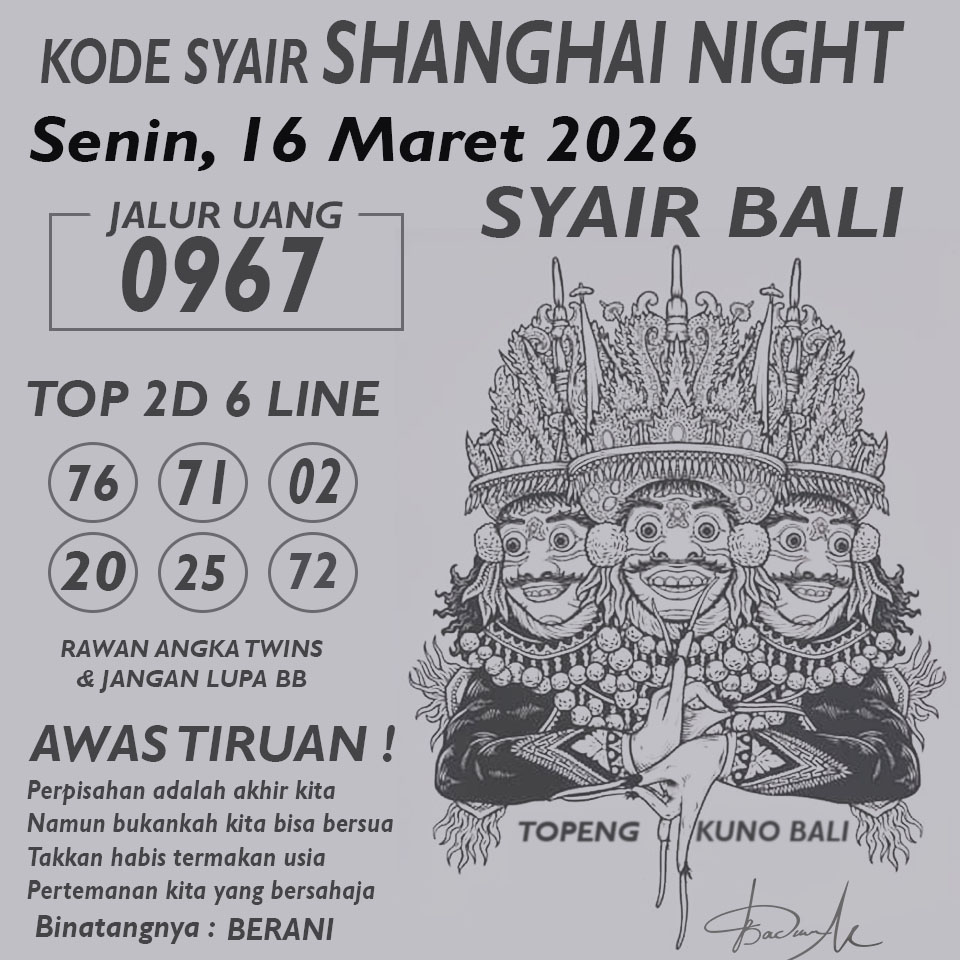 KODE SYAIR SHANGHAI NIGHT
Senin, 16 Maret 2026
SYAIR BALI
JALUR UANG
0967
TOP 2D 6 LINE
76 71 02
20 25 72
RAWAN ANGKA TWINS
& JANGAN LUPA BB
AWAS TIRUAN !
Perpisahan adalah akhir kita
Namun bukankah kita bisa bersua
Takkan habis termakan usia
Pertemanan kita yang bersahaja
Binatangnya : BERANI
TOPENG KUNO BALI